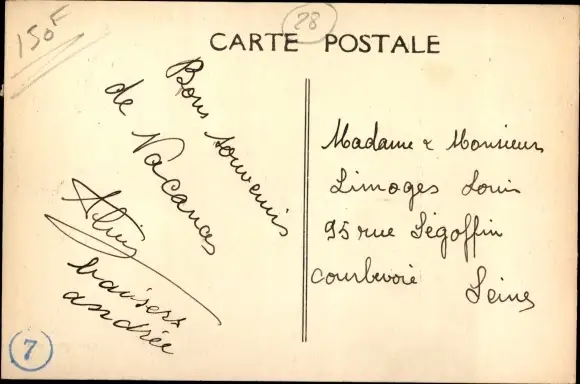 150F
28
CARTE POSTALE
Bons souvenirs
de Vacances
baisers
andrée
Madame & Monsieur
Limoges Louis
95 rue Ségoffin
Courbevoie
Seine
7